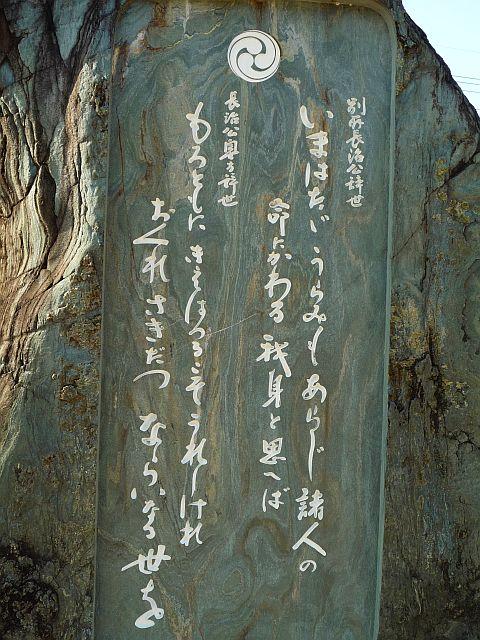 別所長治公辞世
いまはたゞうらみもあらじ諸人の
命にかわる我身と思へば
長治公奥方辞世
もろともにきえはつるこそうれしけれ
おくれさきだつならいなる世を